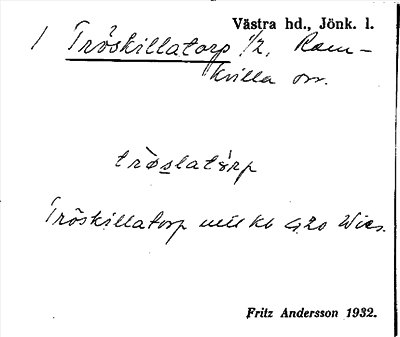 Västra hd., Jönk. l.
1 Tröskillatorp 1/2, Ram-
kvilla sn.
tròslatórp
Tröskillatorp
Fritz Andersson 1932.